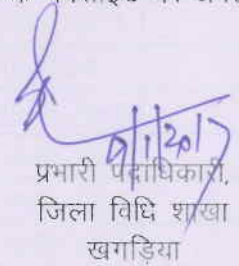 9/1/2017
प्रभारी पदाधिकारी,
जिला विधि शाखा
खगड़िया